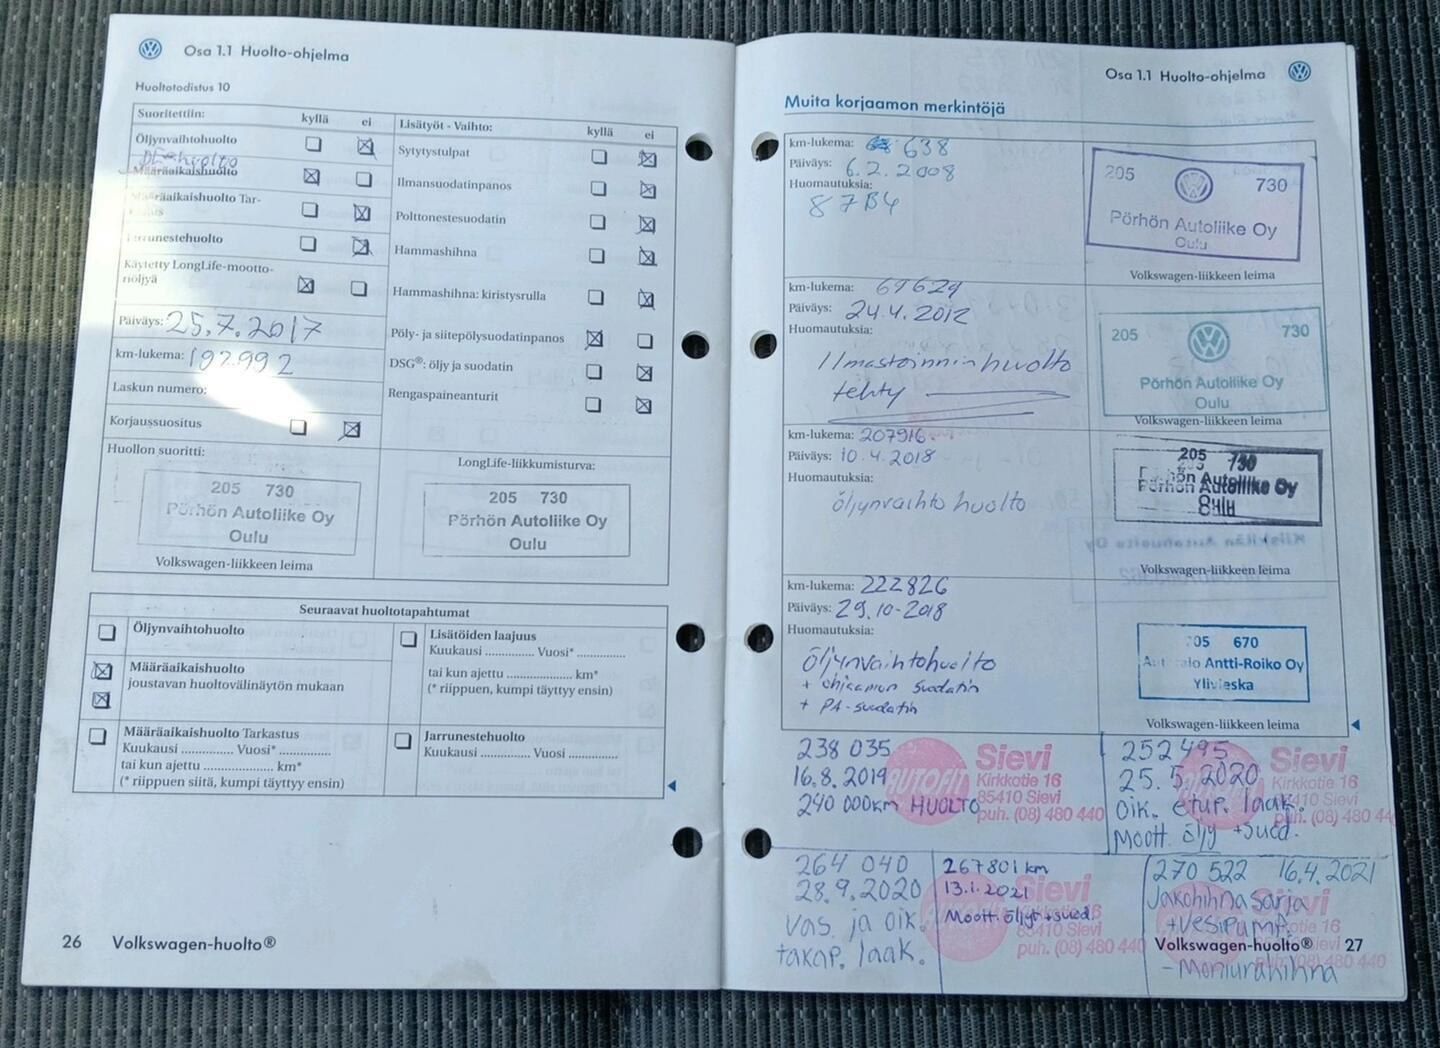 Osa 1.1 Huolto-ohjelma
Huoltotodistus 10
Suoritettiin: kyllä ei
Öljynvaihtohuolto
Määräaikaishuolto
Määräaikaishuolto Tar-
Jarrunestehuolto
Käytetty LongLife-mootto-
riöljyä
Päiväys: 25.7.2017
km-lukema: 192992
Laskun numero:
Korjaussuositus
Lisätyöt - Vaihto: kyllä ei
Sytytystulpat
Ilmansuodatinpanos
Polttonestesuodatin
Hammashihna
Hammashihna: kiristysrulla
Pöly- ja siitepölysuodatinpanos
DSG®: öljy ja suodatin
Rengaspaineanturit
Huollon suoritti:
205 730
Pörhön Autoliike Oy
Oulu
Volkswagen-liikkeen leima
LongLife-liikkumisturva:
205 730
Pörhön Autoliike Oy
Oulu
Seuraavat huoltotapahtumat
Öljynvaihtohuolto
Määräaikaishuolto
joustavan huoltovälinäytön mukaan
Määräaikaishuolto Tarkastus
Kuukausi .............. Vuosi* ..............
tai kun ajettu .................... km*
(* riippuen siitä, kumpi täyttyy ensin)
Lisätöiden laajuus
Kuukausi .............. Vuosi* ..............
tai kun ajettu .................... km*
(* riippuen, kumpi täyttyy ensin)
Jarrunestehuolto
Kuukausi .............. Vuosi ..............
26 Volkswagen-huolto®
Osa 1.1 Huolto-ohjelma
Muita korjaamon merkintöjä
km-lukema: 638
Päiväys: 6.2.2008
Huomautuksia:
87B4
205 730
Pörhön Autoliike Oy
Oulu
Volkswagen-liikkeen leima
km-lukema: 69629
Päiväys: 24.4.2012
Huomautuksia:
Ilmastoinnin huolto
tehty
205 730
Pörhön Autoliike Oy
Oulu
Volkswagen-liikkeen leima
km-lukema: 207916
Päiväys: 10.4.2018
Huomautuksia:
öljynvaihto huolto
205 730
Pörhön Autoliike Oy
Oulu
Volkswagen-liikkeen leima
km-lukema: 222826
Päiväys: 29.10-2018
Huomautuksia:
öljynvaihtohuolto
+ ohjaamon suodatin
+ PA-suodatin
670
Antti-Roiko Oy
Ylivieska
Volkswagen-liikkeen leima
238 035
16.8.2019
240 000km HUOLTO
AUTOFIT
Sievi
Kirkkotie 16
85410 Sievi
puh. (08) 480 440
252 495
25.5.2020
oik. etup. laak.
Moott. öljy + suod.
Sievi
Kirkkotie 16
85410 Sievi
puh. (08) 480 44
264 040
28.9.2020
vas. ja oik.
takap. laak.
267801 km
13.1.2021
Moott. öljyt + suod.
Sievi
Kirkkotie 16
85410 Sievi
puh. (08) 480 440
270 522 16.4.2021
Jakohihnasarja
+ vesipump.
- Moniurahihna
Sievi
Kirkkotie 16
Sievi
puh. (08) 480 440
Volkswagen-huolto® 27